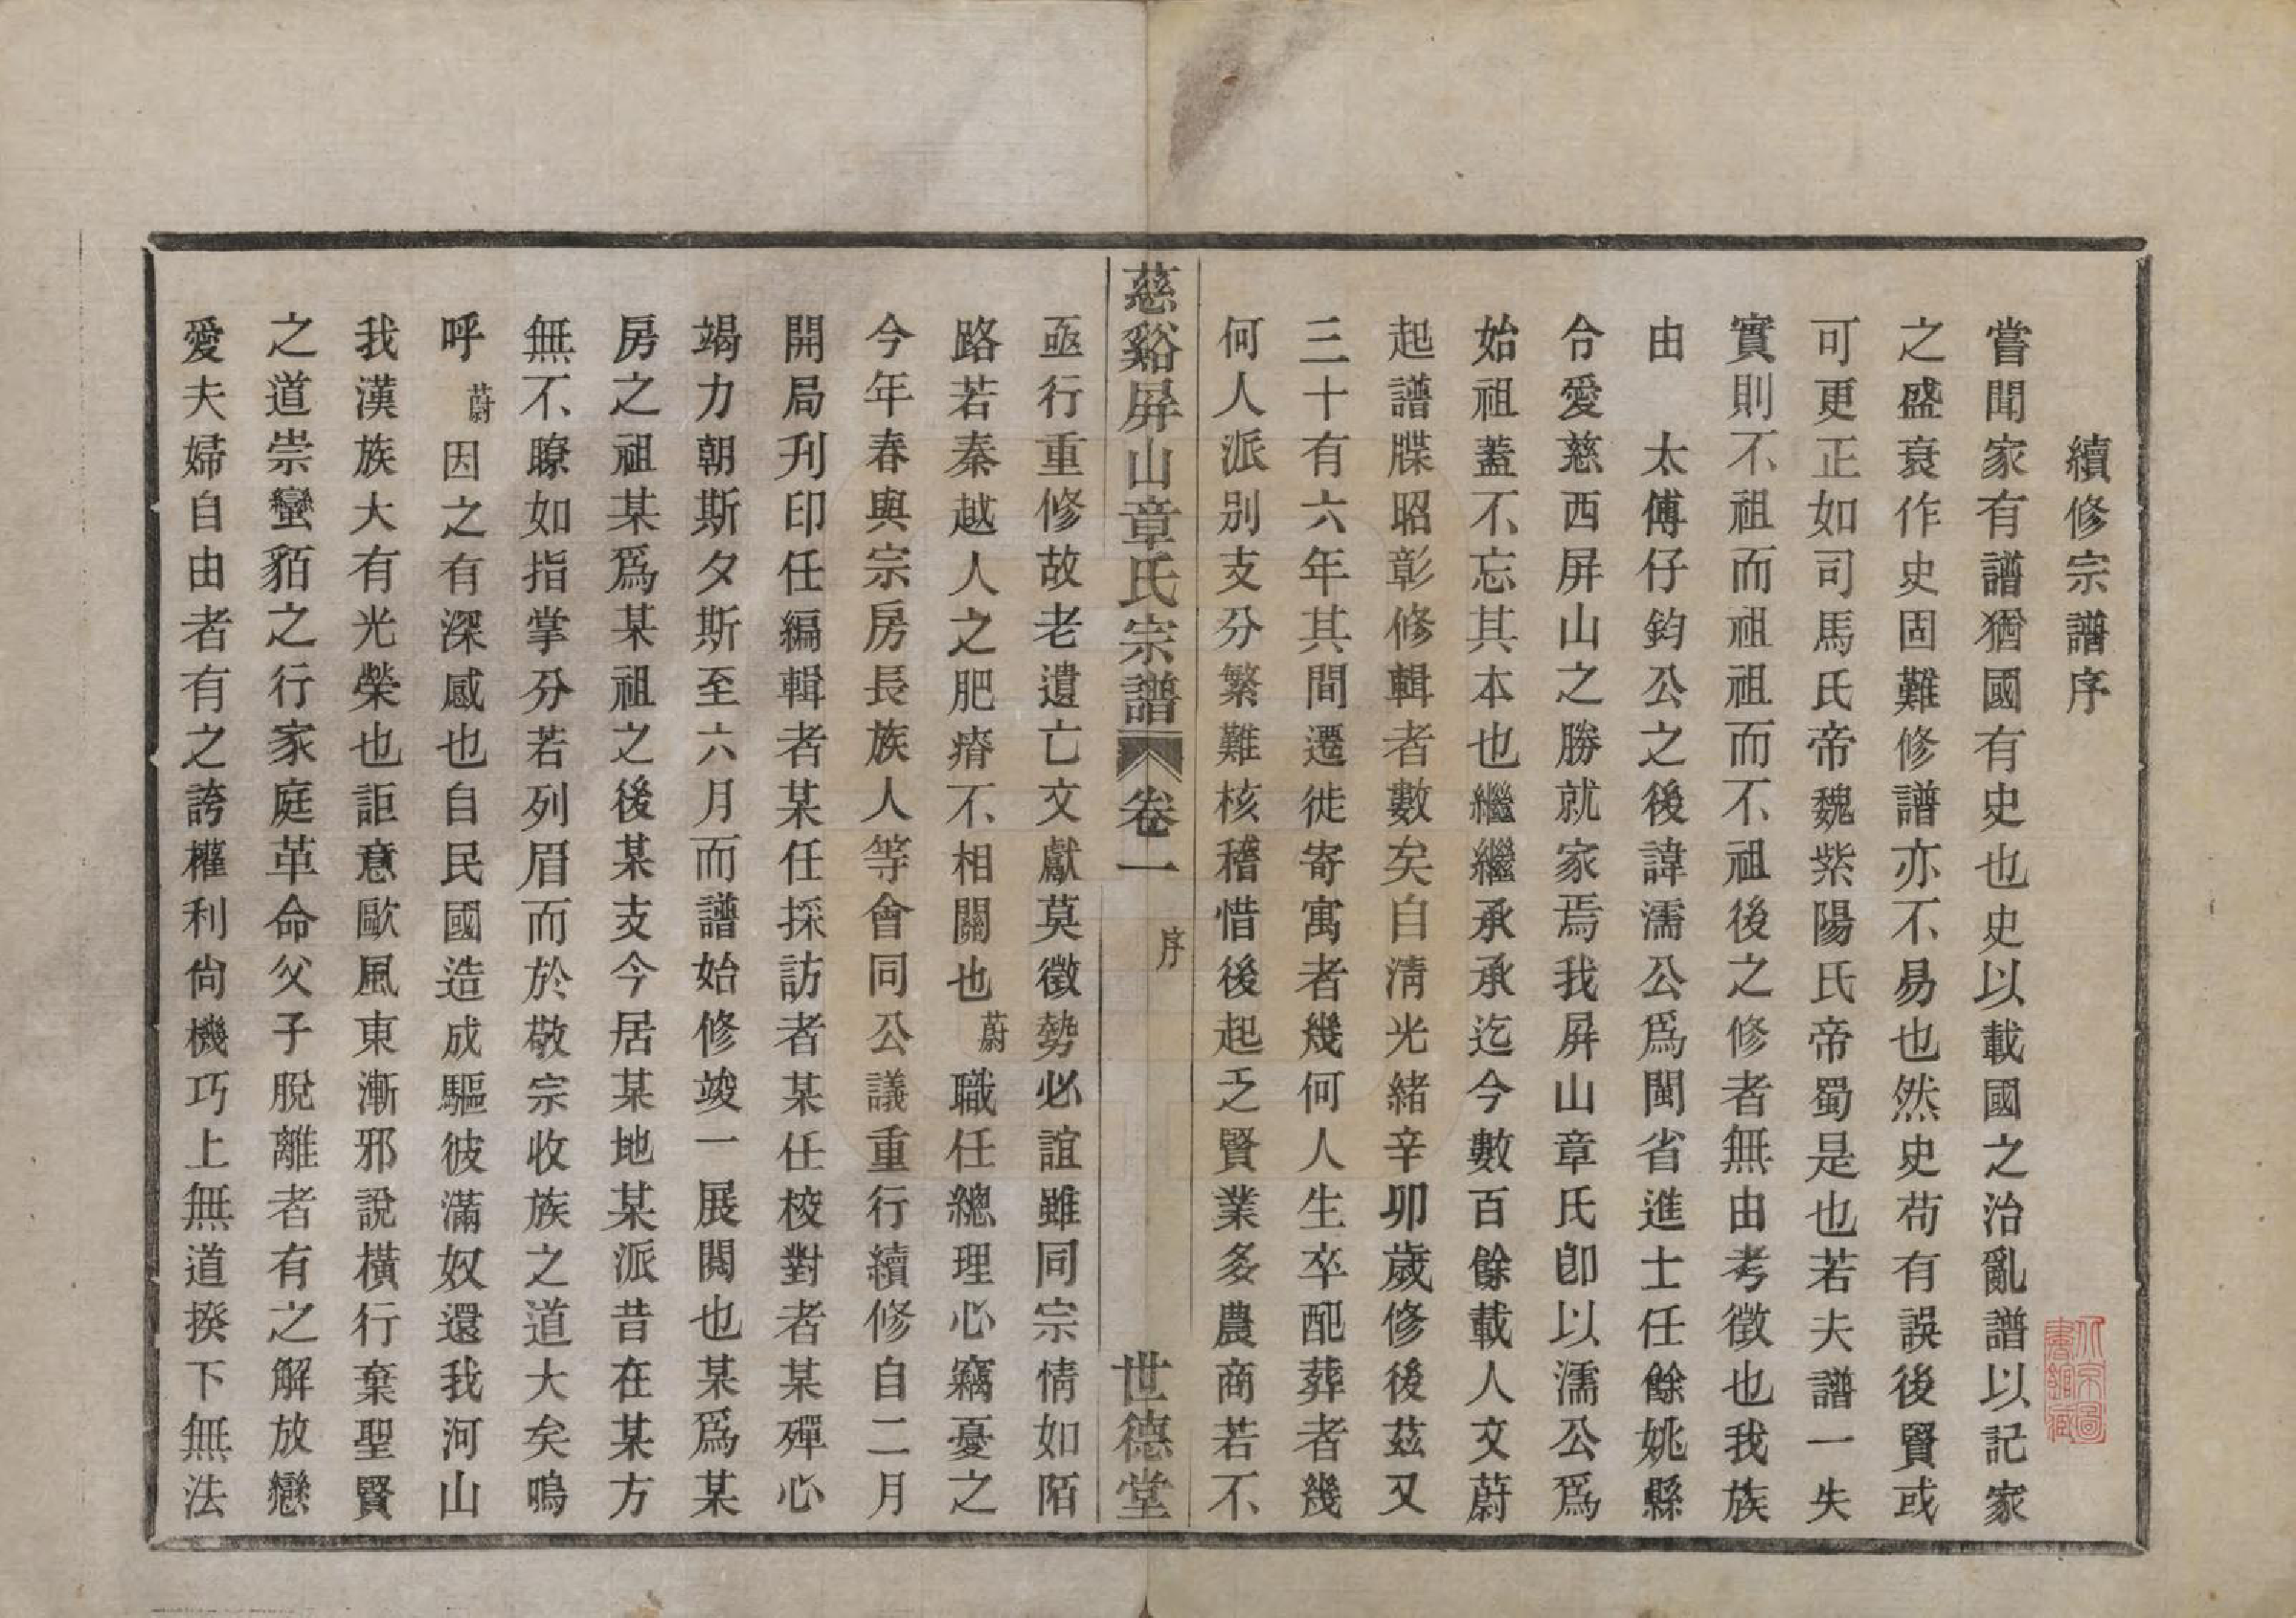 續修宗譜序
嘗聞家有譜猶國有史也史以載國之治亂譜以記家
之盛衰作史固難修譜亦不易也然史苟有誤後賢或
可更正如司馬氏帝魏紫陽氏帝蜀是也若夫譜一失
實則不祖而祖祖而不祖後之修者無由考徵也我族
由　太傅仔鈞公之後諱濡公爲閩省進士任餘姚縣
令愛慈西屏山之勝就家焉我屏山章氏卽以濡公爲
始祖蓋不忘其本也繼繼承承迄今數百餘載人文蔚
起譜牒昭彰修輯者數矣自淸光緒辛卯歲修後茲又
三十有六年其間遷徙寄寓者幾何人生卒配葬者幾
何人派別支分繁難核稽惜後起乏賢業多農商若不
慈谿屏山章氏宗譜　卷一　序　世德堂
亟行重修故老遺亡文獻莫徵勢必誼雖同宗情如陌
路若秦越人之肥瘠不相關也蔚職任總理心竊憂之
今年春與宗房長族人等會同公議重行續修自二月
開局刋印任編輯者某任採訪者某任校對者某殫心
竭力朝斯夕斯至六月而譜始修竣一展閱也某爲某
房之祖某爲某祖之後某支今居某地某派昔在某方
無不瞭如指掌分若列眉而於敬宗收族之道大矣嗚
呼蔚因之有深感也自民國造成驅彼滿奴還我河山
我漢族大有光榮也詎意歐風東漸邪說橫行棄聖賢
之道崇蠻貊之行家庭革命父子脫離者有之解放戀
愛夫婦自由者有之誇權利尙機巧上無道揆下無法